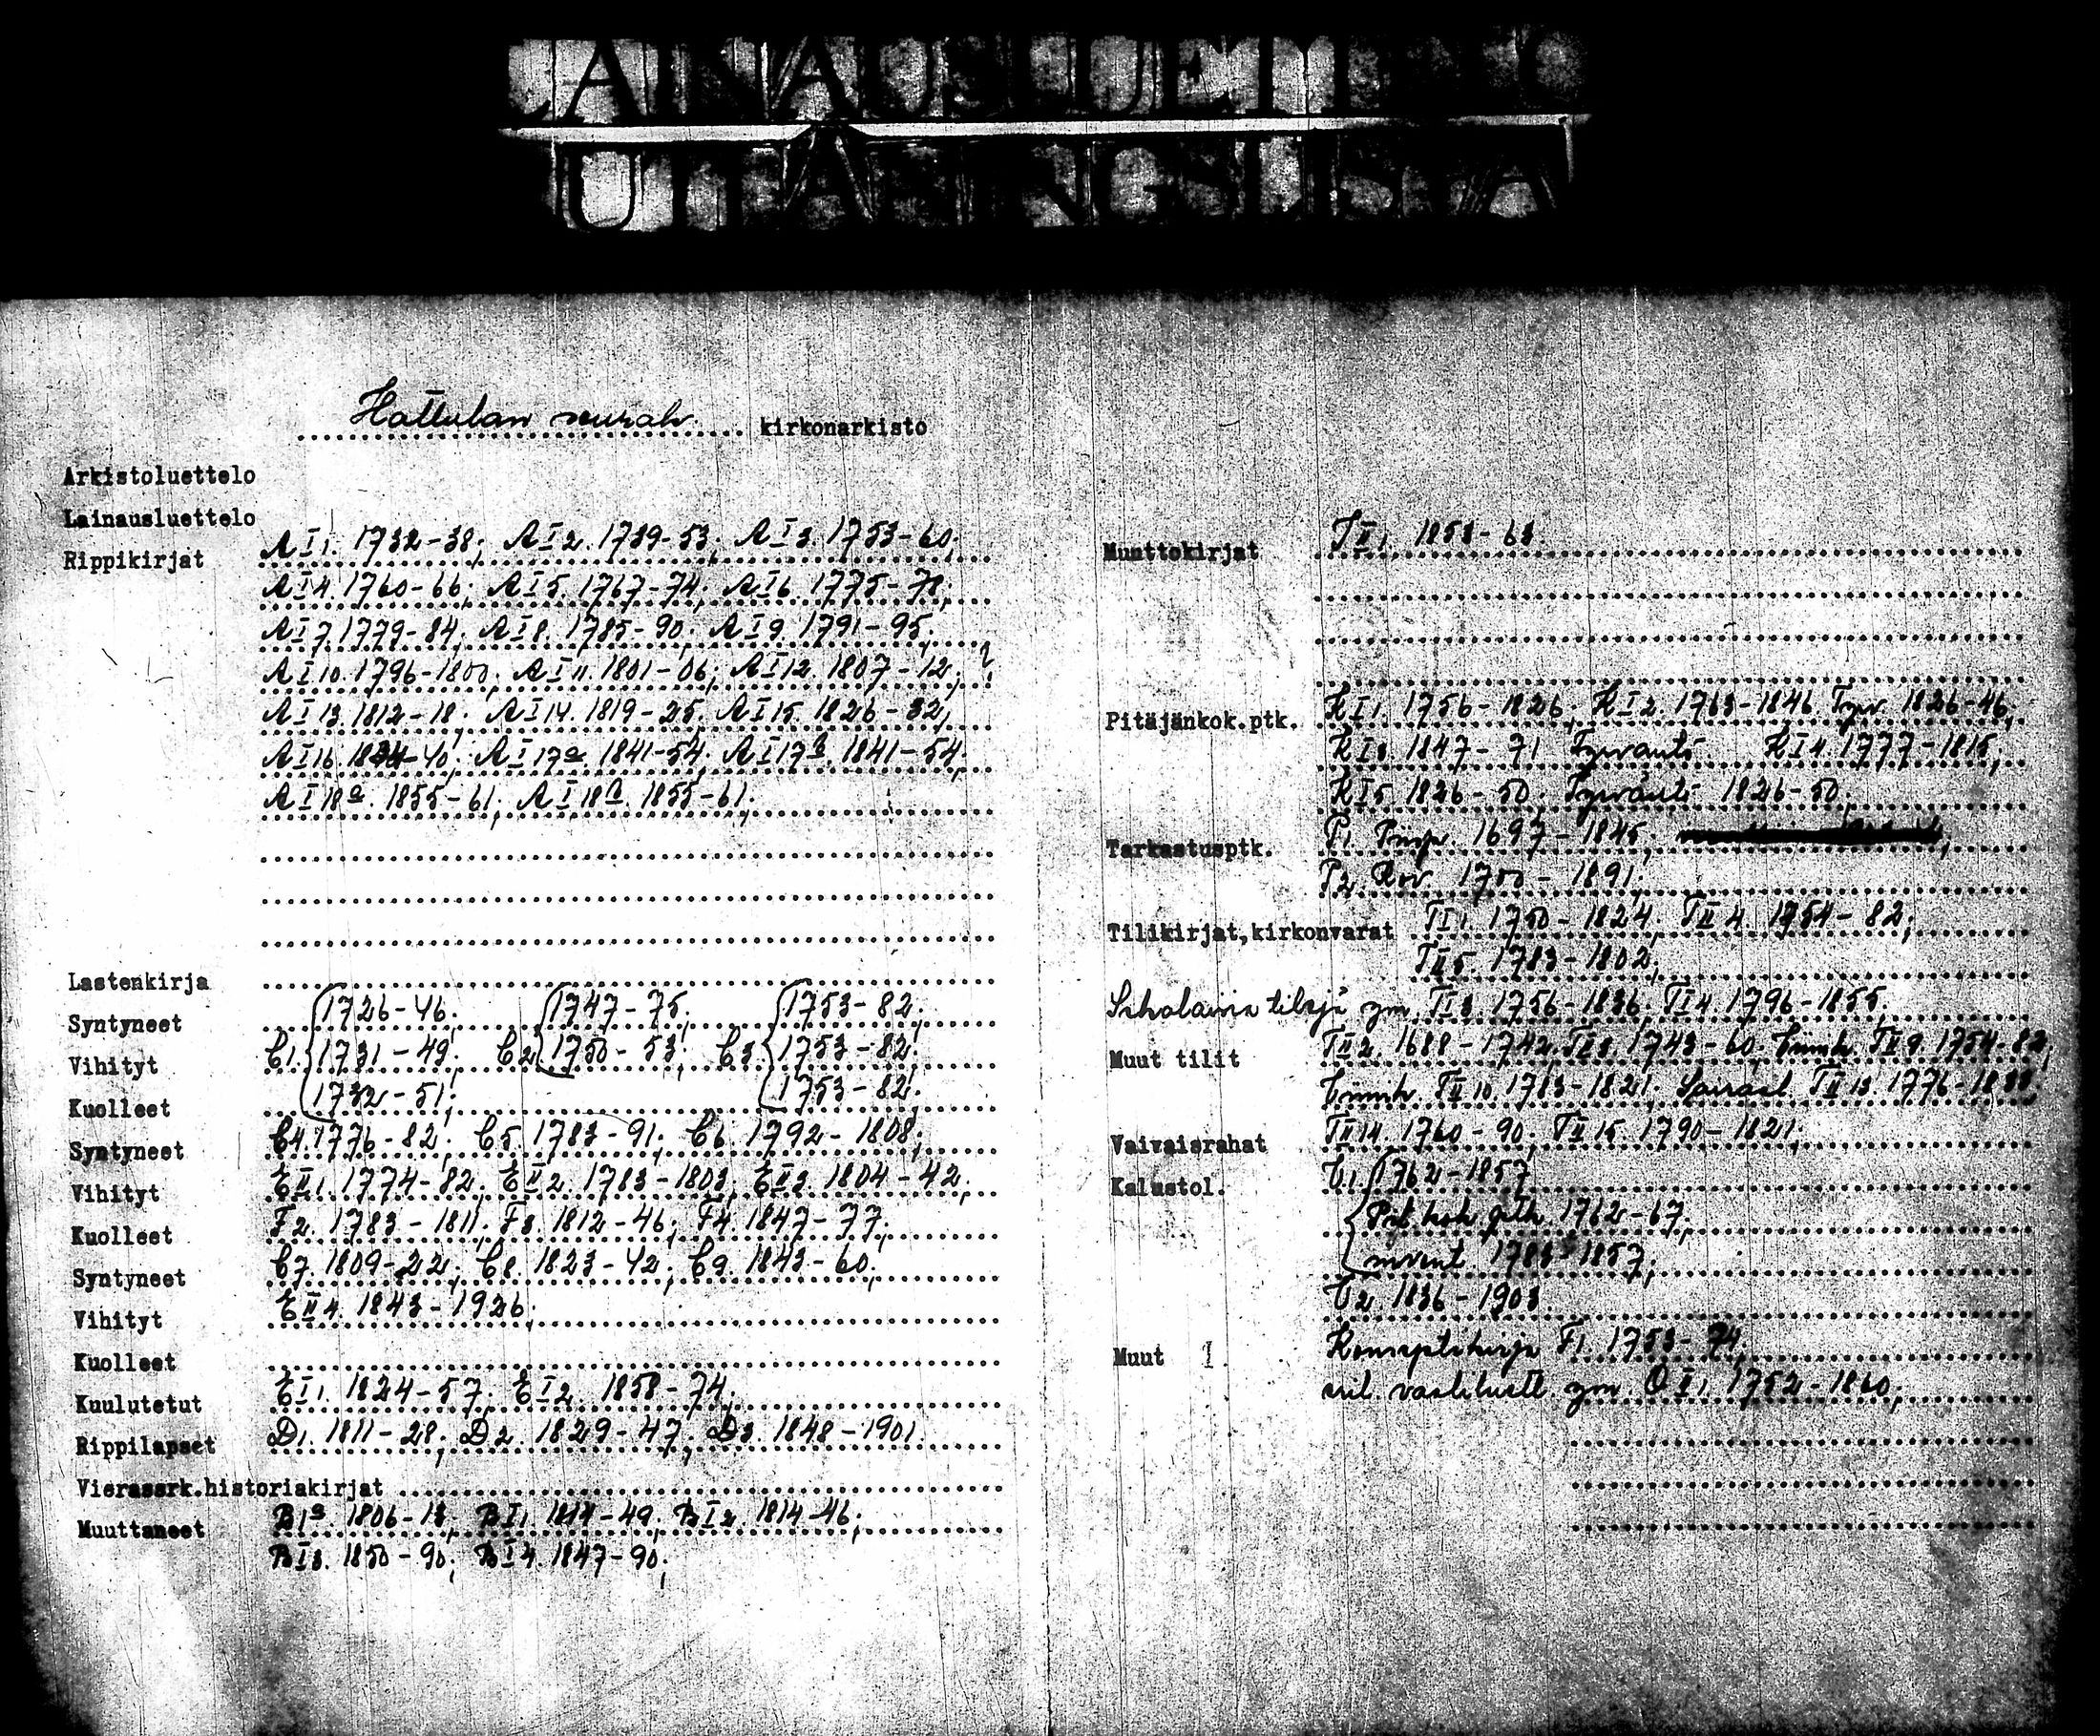 LAINAUSLUETTELO
UTLÅNINGSLISTA
Hattulan seurak. kirkonarkisto
Arkistoluettelo
Lainausluettelo
Rippikirjat A I 1. 1732-38; A I 2. 1739-53; A I 3. 1753-60;
A I 4. 1760-66; A I 5. 1767-74; A I 6. 1775-78;
A I 7. 1779-84; A I 8. 1785-90; A I 9. 1791-95;
A I 10. 1796-1800; A I 11. 1801-06; A I 12. 1807-12; ?
A I 13. 1812-18; A I 14. 1819-25; A I 15. 1826-32;
A I 16. 1834-40; A I 17a. 1841-54; A I 17b. 1841-54;
A I 18a. 1855-61; A I 18b. 1855-61;
Lastenkirja
Syntyneet 1726-46; 1747-75; 1753-82;
Vihityt C1. 1731-49; C2 1750-53; C3. 1753-82;
Kuolleet 1732-51; 1753-82;
Syntyneet C4. 1776-82; C5. 1783-91; C6. 1792-1808;
Vihityt E II 1. 1774-82; E II 2. 1783-1803; E II 3. 1804-42;
Kuolleet F2. 1783-1811; F3. 1812-46; F4. 1847-77;
Syntyneet C7. 1809-22; C8. 1823-42; C9. 1843-60;
Vihityt E II 4. 1843-1926.
Kuolleet
Kuulutetut E I 1. 1824-57; E I 2. 1858-74;
Rippilapset D1. 1811-28; D2. 1829-47; D3. 1848-1901.
Vierasark.historiakirjat
Muuttaneet B1a. 1806-13; B I 1. 1814-49; B I 2. 1814-46;
B I 3. 1850-90; B I 4. 1847-90;
Muuttokirjat 1853-63.
Pitäjänkok.ptk. K I 1. 1756-1826; K I 2. 1763-1846 Tyrv. 1826-46;
K I 3. 1847-71 Tyrväntö K I 4. 1777-1815;
K I 5 1826-50; Tyrväntö 1826-50;
Tarkastusptk. P1. 1697-1845;
P2. Rov. 1700-1891;
Tilikirjat,kirkonvarat T I 1. 1750-1824; T II 4. 1754-82;
T II 5. 1783-1802;
ym. T I 3. 1756-1836; T I 4. 1796-1855;
Muut tilit T II 2. 1688-1742; T II 3. 1743-60; T II 9. 1754-82;
T II 10. 1783-1821; T II 13. 1776-1838;
Vaivaisrahat T II 14. 1760-90; T II 15. 1790-1821;
Kalustol. U1. 1762-1857
Pit. kok. ptk. 1762-67;
invent. 1783-1857;
U2. 1836-1903.
Muut I Konseptikirja F1. 1753-74;
ym. O II 1. 1752-1860;